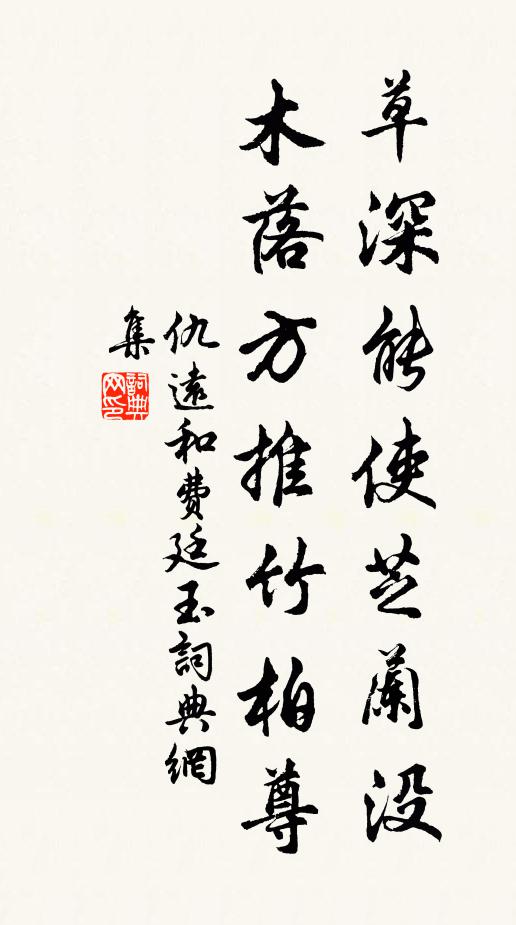 草深能使芝蘭没
木落方推竹柏尊
仇遠和費廷玉詞典網
集
詞典
网印